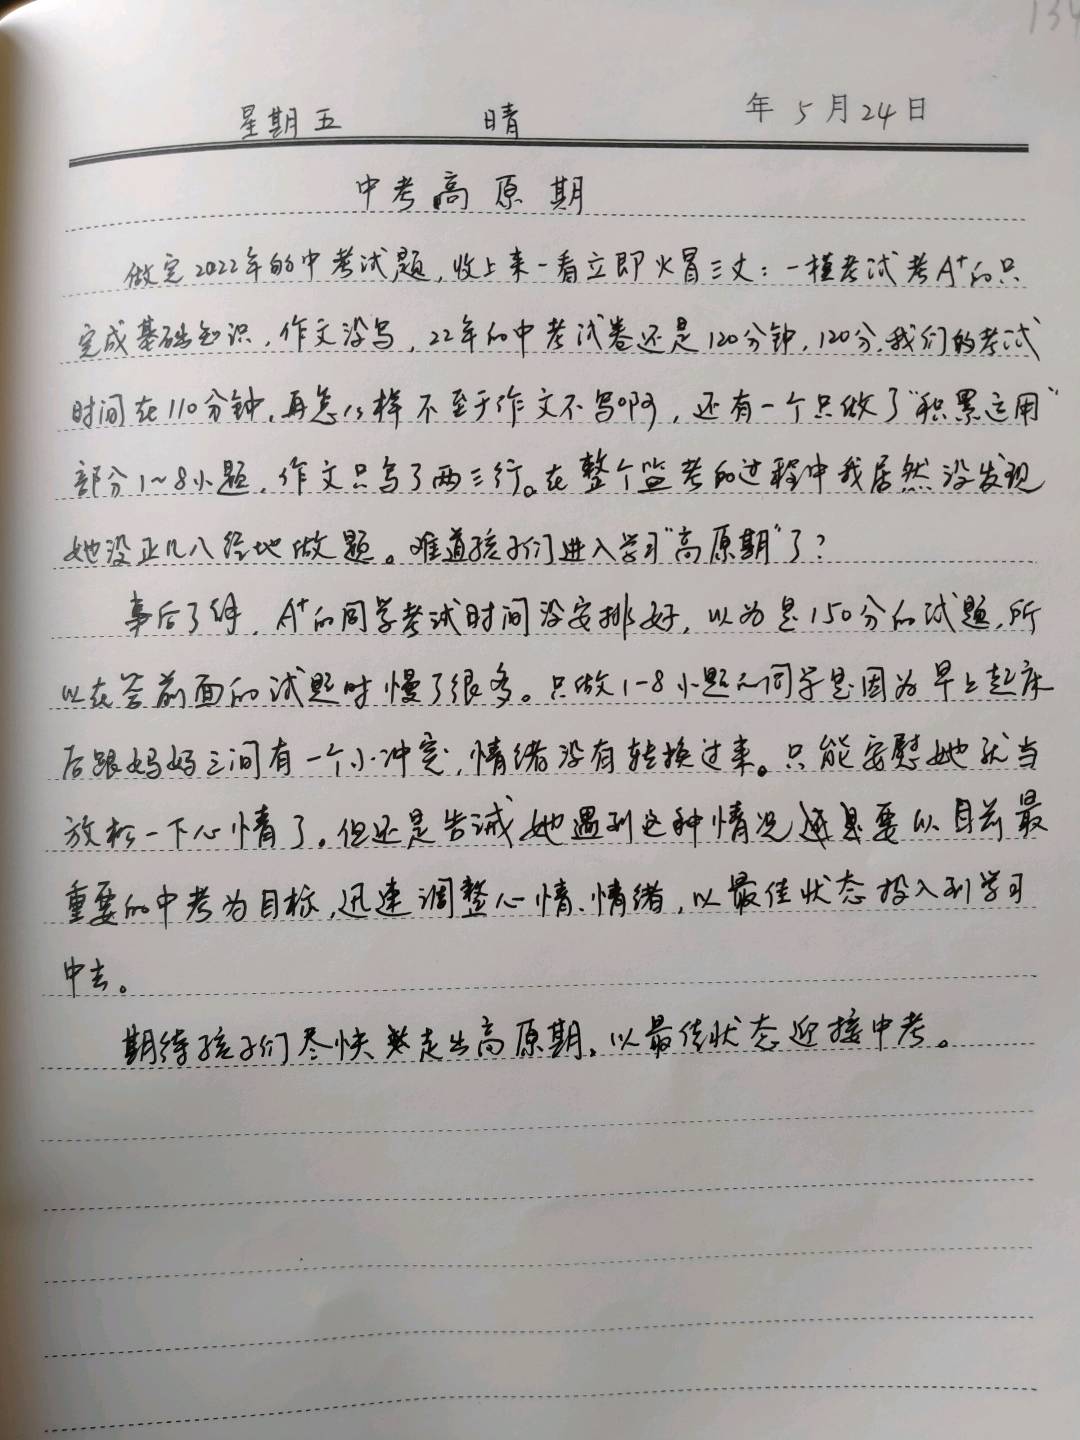 134
星期五 晴 年 5月24日
中考高原期
做完2022年的中考试题,收上来一看立即火冒三丈:一模考试考A+的只
完成基础知识,作文没写,22年的中考试卷还是120分钟,120分,我们的考试
时间在110分钟,再怎么样不至于作文不写啊,还有一个只做了"积累运用"
部分1~8小题,作文只写了两三行。在整个监考的过程中我居然没发现
她没正儿八经地做题。难道孩子们进入学习"高原期"了?
事后了解,A+的同学考试时间没安排好,以为是150分的试题,所
以在答前面的试题时慢了很多。只做1-8小题的同学是因为早上起床
后跟妈妈之间有一个小冲突,情绪没有转换过来。只能安慰她就当
放松一下心情了。但还是告诫她遇到这种情况还是要以目前最
重要的中考为目标,迅速调整心情、情绪,以最佳状态投入到学习
中去。
期待孩子们尽快走出高原期,以最佳状态迎接中考。